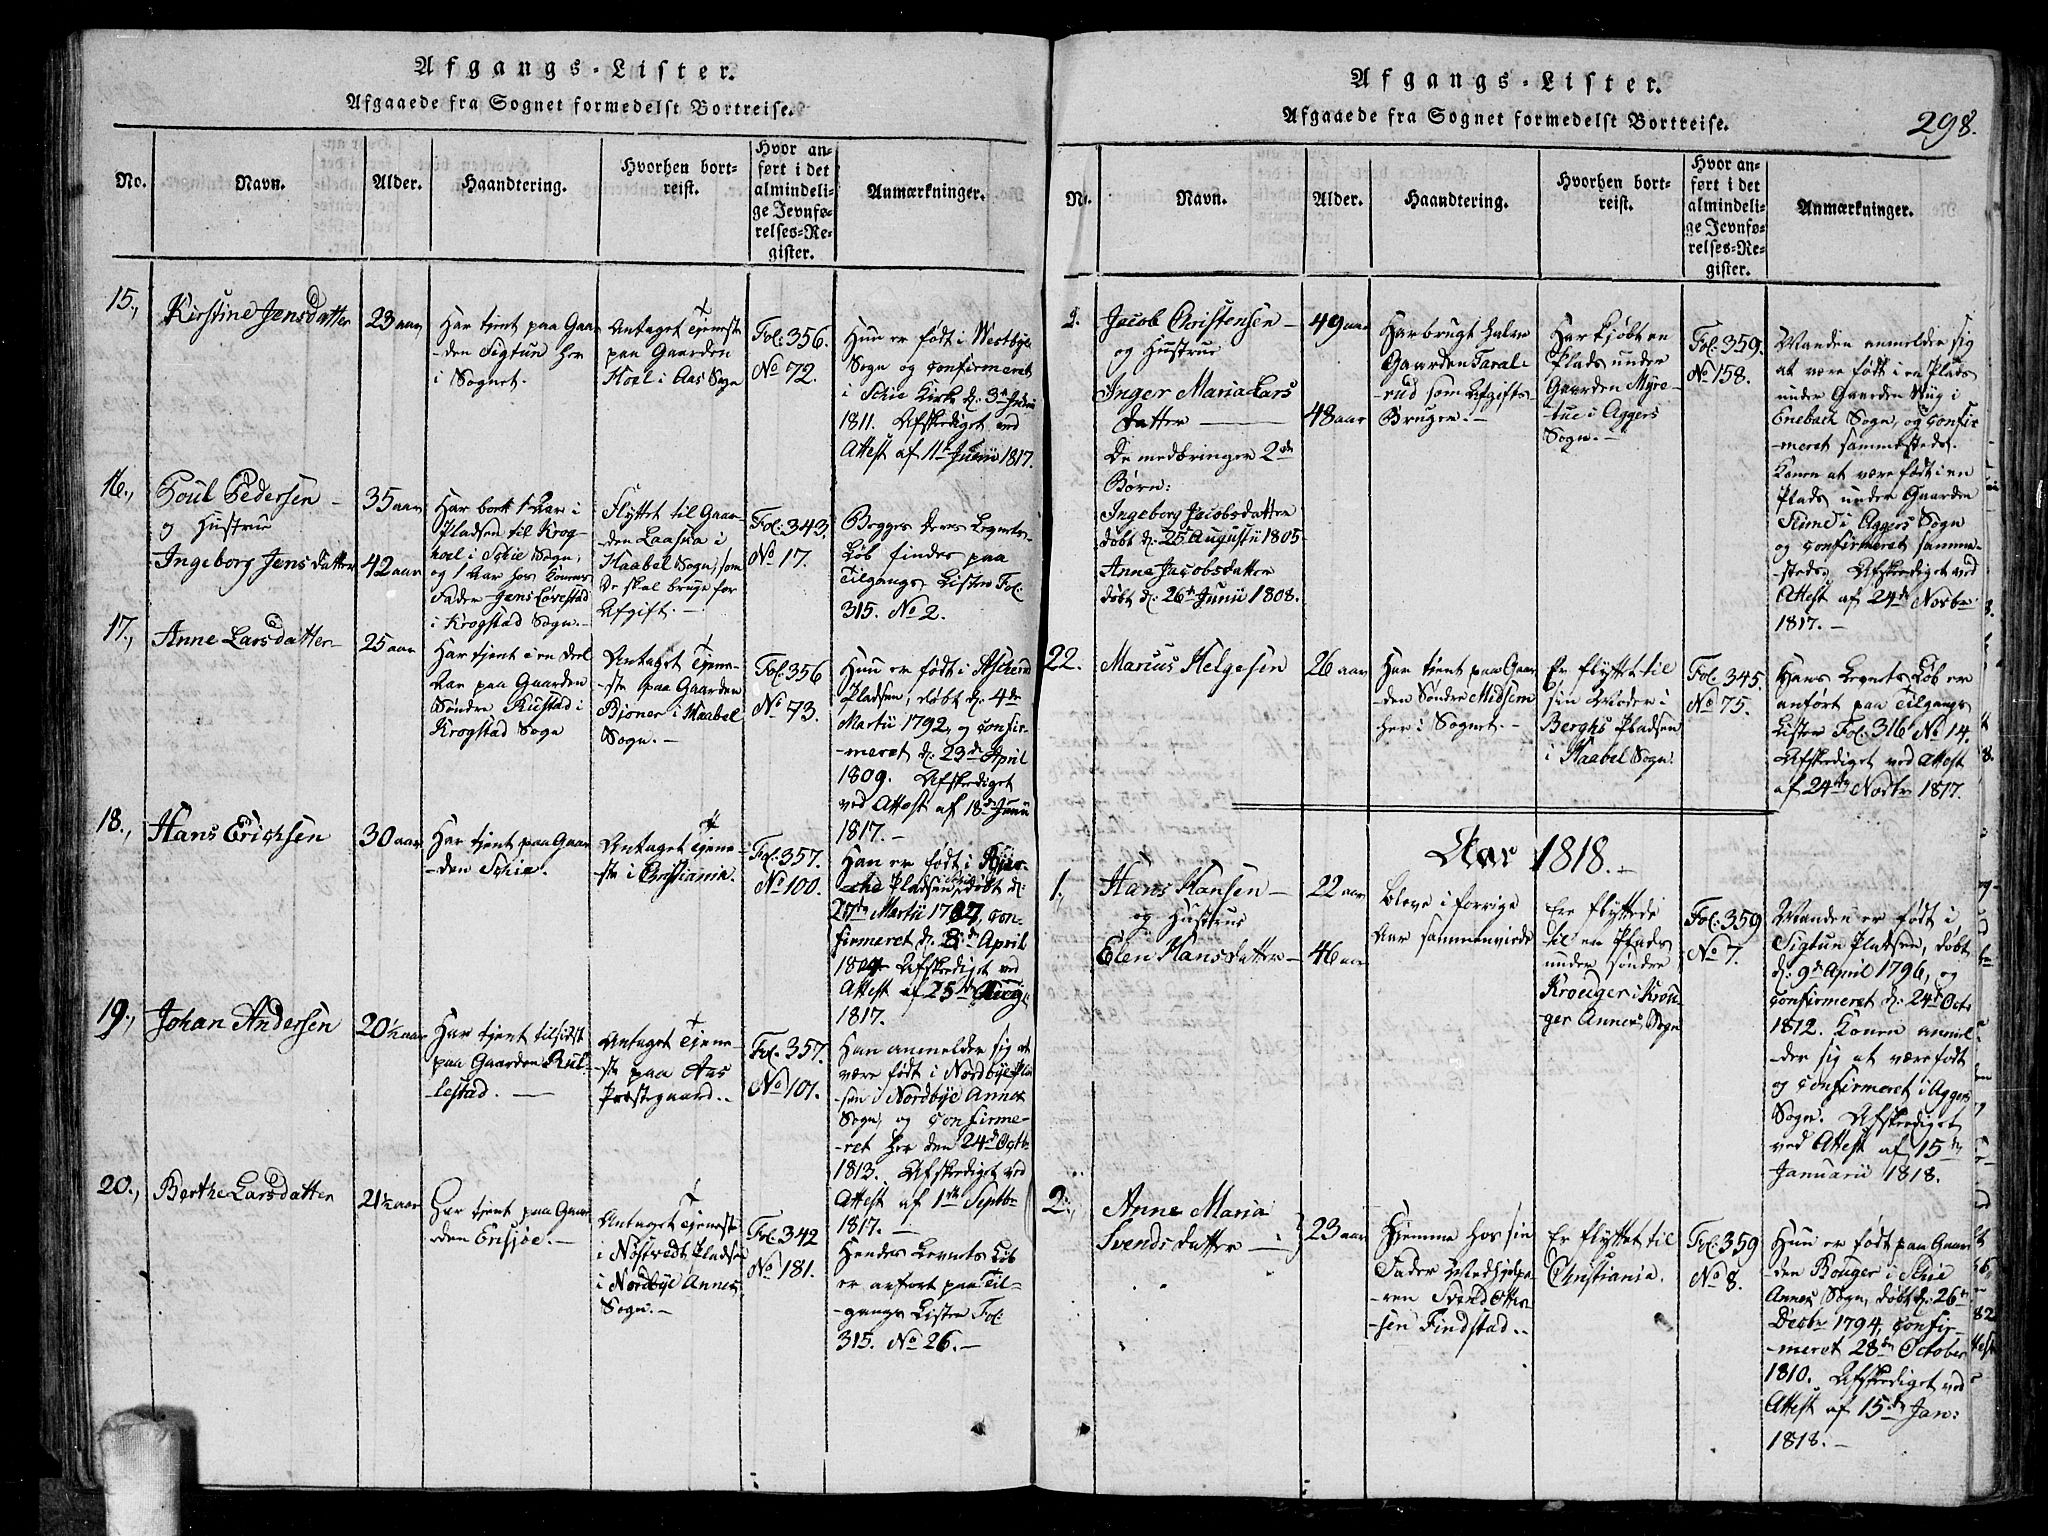 Afgangs-Lister.
Afgaaede fra Sognet formedelst Bortreise.
No.
Navn.
Alder.
Haandtering.
Hvorhen bort-
reist.
Hvor an-
ført i det
almindeli-
ge Jevnfø-
relses-Re-
gister.
Anmærkninger.
15.,
Kirstine Jensdatter
23 aar
Har tjent paa Gaar
-den Sigtun her
i Sognet.
Antaget Tjeneste
paa Gaarden
Hoel i Aas Sogn
Fol: 356.
No 72.
Hun er født i Westbye
Sogn og confirmeret
i Schie Kirke d:
1811. Afskediget ved
Attest af 11te Junii 1817.
16.,
Poul Pedersen -
og Hustrue
Ingeborg Jens datter
35 aar
42 aar
Har boet 1 Aar i
Pladsen til Krog-
hoel i Schie Sogn,
og 1 Aar hos Konens
Fader Jens Løvestad
i Krogstad Sogn.-
Flyttet til Gaar
-den Laasua i
Haabel Sogn, som
De skal bruge for
Afgift. -
Fol: 343.
No 17.
Begges Deres Levnets-
Løb findes paa
Tilgangs Listen Fol:
315. No 2.
17.,
Anne Larsdatter-
25 aar
Har tjent i en Deel
Aar paa Gaarden
Søndre Rustad i
Krogstad Sogn
Antaget Tjene-
-ste paa Gaarden
Bjoner i Haabel
Sogn. -
Fol: 356
No 73.
Hun er født i
Pladsen, døbt d: 4de
Martii 1792, og confir-
-meret d: 23de April
1809. Afskediget
ved Attest af 18de Junii
1817. -
18.,
Hans Erichsen
30 aar
Har tjent paa Gaar
-den Schie.
Antaget Tjene-
-ste i Christiania.
Fol: 357.
No 100.
Han er født i
Pladsen, døbt d:
27de Martii con-
firmeret d: April
Afskediget ved
Attest af 25de
1817.
19.,
Johan Andersen
20 1/2 aar
Har tjent tilsidst
paa Gaarden Kul-
-lestad. -
Antaget Tjene
-ste paa Aas
Præstegaard..
Fol: 357.
No 101.
Han anmelder sig at
være født i Nordbye Pla
-sen i Nordbye Annex
Sogn, og confirme-
-ret her den 24de Octbr
1813. Afskediget ved
Attest af 1ste Septbr
1817. -
20.,
Berthe Larsdatter
21 1/2 aar
Har tjent paa Gaar
-den Ensjøe. -
Antaget Tjeneste
i Nøstvedt Pladsen
i Nordbye Annex
Sogn. -
Fol: 342
No 181.
Hendes Levnets Løb
er anført paa Til-
-gangs Listen Fol:
315. No 26. -
Afgangs-Lister.
Afgaaede fra Sognet formedelst Bortreise.
298.
No.
Navn.
Alder.
Haandtering.
Hvorhen bort-
reist.
Hvor an-
ført i det
almindeli-
ge Jevnfø-
relses-Re-
gister.
Anmærkninger.
Jacob Christensen -
og Hustrue
Inger Maria Lars
datter -
De medbringer 2de
Børn:
Ingeborg Jacobsdatter
døbt d: 25 Augustii 1805
Anne Jacobsdatter
døbt d: 26de Junii 1808.
49 aar
48 aar
Har brugt halve
Gaarden Taral-
-rud som Afgifts
Bruger. -
Har kjøbt en
Plads under
Gaarden Myre-
-tue i Aggers
Sogn. -
Fol: 359.
No 158.
Manden anmelder sig
at være født i en Plads
under Gaarden i
Enebach Sogn, og confir
-meret sammestedet.
Konen at være født i en
Plads under Gaarden
i Aggers Sogn
og confirmeret samme-
-steds, Afskediget ved
Attest af 24de Novbr
1817. -
22.
Marius Helgesen
26 aar
Har tjent paa Gaar
den Søndre Midsem
her i Sognet. -
Er flyttet til
sin Moder i
Berghs Pladsen
i Haabel Sogn.
Fol: 345.
No 75.
Hans Levnets Løb er
anført paa Tilgangs
Listen Fol: 316 No 14.
Afskediget ved Attest
af 24de Novbr 1817.
Aar 1818. -
1.
Hans Hansen -
og Hustrue
Elen Hansdatter -
22 aar
46 aar
Bleve i forrige
Aar sammenviede
Ere flyttede
til en Plads
under søndre
Krouger i Krou-
ger Annex Sogn
Fol: 359
No 7.
Manden er født i
Sigtun Pladsen, døbt
d: 9de April 1796, og
confirmeret d: 24de Octr
1812. Konen anmel-
-der sig at være født
og confirmeret i Aggers
Sogn. Afskediget
ved Attest af 15de
Januarii 1818.
2.,
Anne Maria
Svends datter -
23 aar
Hjemme hos sin
Fader Medhjelpe-
-ren Svend Otter-
-sen Findstad..
Er flyttet til
Christiania.
Fol: 359
No 8.
Hun er født paa Gaar
den Bouger i Schie
Annex Sogn, døbt d: 26de
Decbr 1794, confir-
-meret 28de October
1810. Afskediget ved
Attest af 15de Jan:
1818. -